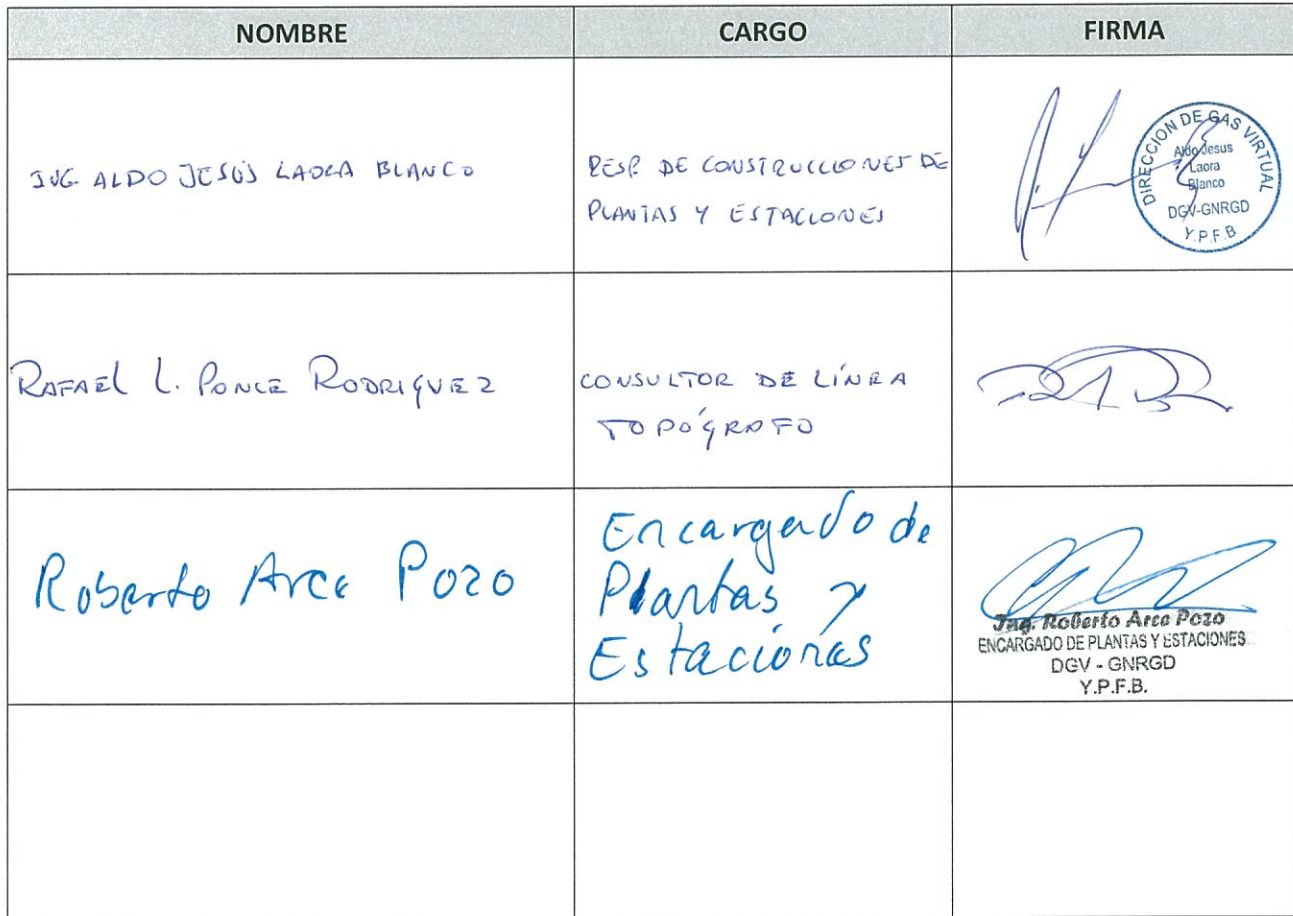 NOMBRE CARGO FIRMA
ING. ALDO JESÚS LAORA BLANCO
RESP. DE CONSTRUCCIONES DE
PLANTAS Y ESTACIONES
DIRECCION DE GAS VIRTUAL
Aldo Jesus
Laora
Blanco
DGV-GNRGD
Y.P.F.B
RAFAEL L. PONCE RODRIGUEZ
CONSULTOR DE LÍNEA
TOPÓGRAFO
Roberto Arce Pozo
Encargado de
Plantas y
Estaciones
Ing. Roberto Arce Pozo
ENCARGADO DE PLANTAS Y ESTACIONES
DGV - GNRGD
Y.P.F.B.